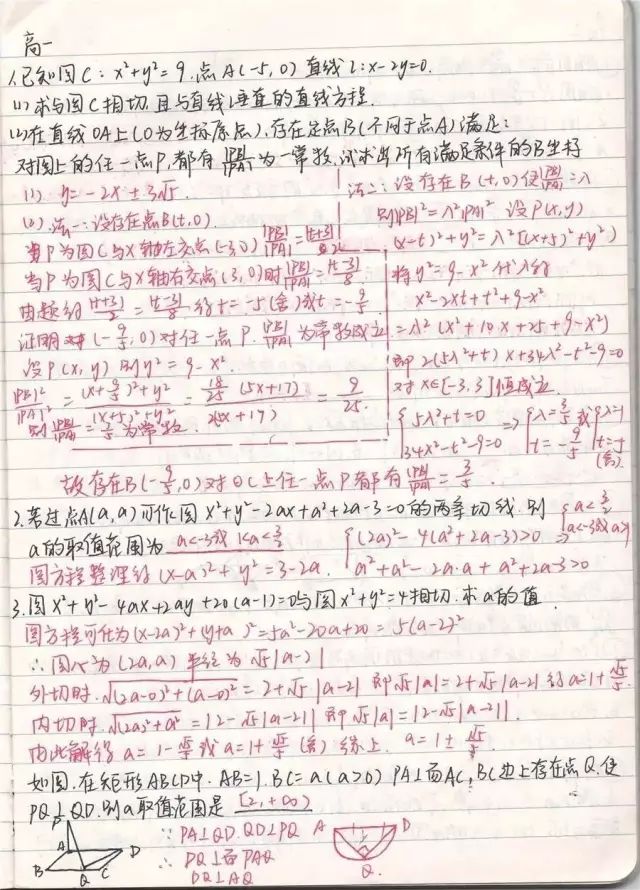 高一
1.已知圆C: x²+y²=9.点A(-5,0) 直线l:x-2y=0.
(1)求与圆C相切,且与直线l垂直的直线方程.
(2)在直线OA上(O为坐标原点),存在定点B(不同于点A)满足:
对圆上的任一点P,都有|PB|/|PA|为一常数,试求出所有满足条件的B坐标
(1) y=-2x±3√5.
(2)法一:设存在点B(t,0)
当P为圆C与X轴左交点(-3,0) |PB|/|PA|=|t+3|/2
当P为圆C与X轴右交点(3,0)时|PB|/|PA|=|t-3|/8.
由题的|t+3|/2=|t-3|/8得t=-5(舍)或t=-9/5
证明 对(-9/5,0)对任一点P.|PB|/|PA|为常数成立
设P(x,y) 则y²=9-x².
|PB|²/|PA|²=((x+9/5)²+y²)/((x+5)²+y²)=(18/25(5x+17))/(2(5x+17))=9/25.
则|PB|/|PA|=3/5为常数.
法二:设存在B(t,0)使|PB|/|PA|=λ
则|PB|²=λ²|PA|² 设P(x,y)
(x-t)²+y²=λ²[(x+5)²+y²)
将y²=9-x²代入得
x²-2xt+t²+9-x²
=λ²(x²+10x+25+9-x²)
即2(5λ²+t)x+34λ²-t²-9=0
对x∈[-3,3]恒成立
{5λ²+t=0 34λ²-t²-9=0 ⇒ {λ=3/5 t=-9/5 或 {λ=1 t=-5 (舍).
故存在B(-9/5,0)对⊙C上任一点P都有|PB|/|PA|=3/5.
2.若过点A(a,a)可作圆x²+y²-2ax+a²+2a-3=0的两条切线.则
a的取值范围为 a<-3或1<a<3/2
{(2a)²-4(a²+2a-3)>0 a²+a²-2a·a+a²+2a-3>0 ⇒ {a<3/2 a<-3或a>1
圆方程整理得(x-a)²+y²=3-2a.
3.圆x²+y²-4ax+2ay+20(a-1)=0与圆x²+y²=4相切.求a的值.
圆方程可化为(x-2a)²+(y+a)²=5a²-20a+20=5(a-2)²
∴圆心为(2a,a) 半径为√5|a-2|
外切时.√((2a-0)²+(a-0)²=2+√5|a-2| 即√5|a|=2+√5|a-2|得a=1+√5/5
内切时.√((2a)²+a²=|2-√5|a-2|| 即√5|a|=|2-√5|a-2||.
由此解得a=1-√5/5或a=1+√5/5(舍)综上.a=1±√5/5.
如图.在矩形ABCD中.AB=1.BC=a(a>0) PA⊥面AC,BC边上存在点Q.使
PQ⊥QD.则a取值范围是 [2,+∞)
P A B Q C D
∵PA⊥QD.QD⊥PQ
∵DQ⊥面PAQ
DQ⊥AQ
A D 1 Q.